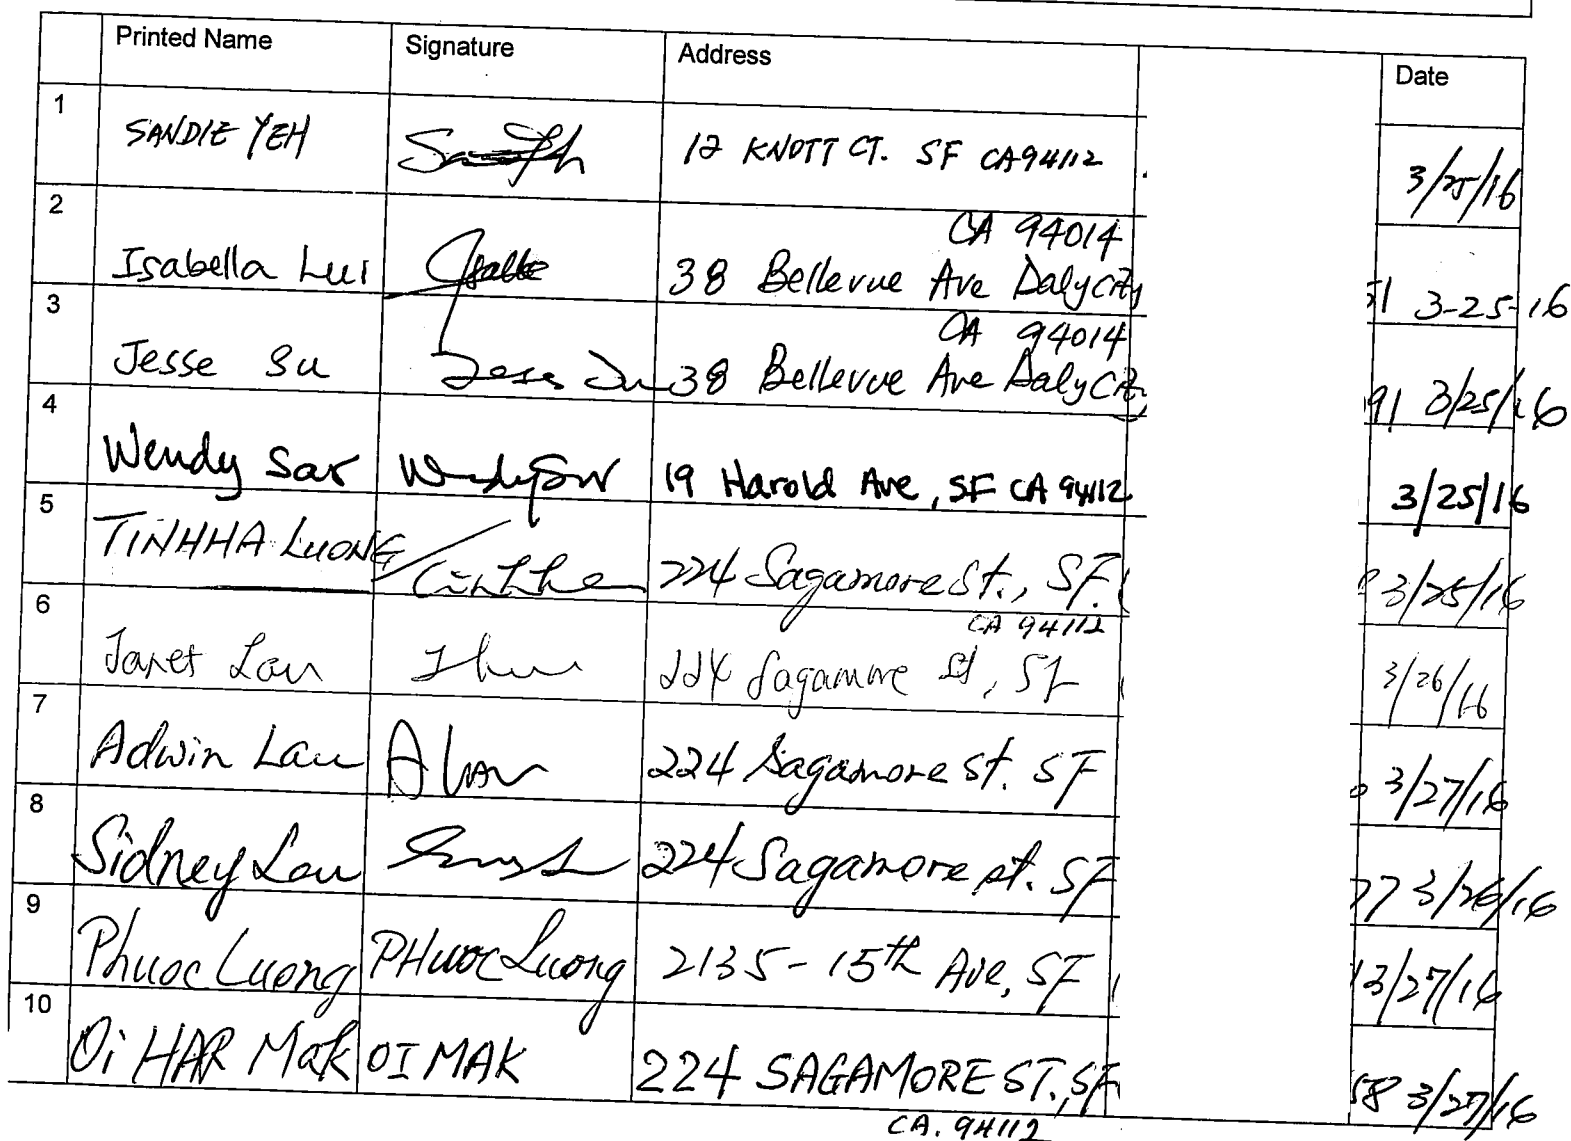 Printed Name Signature Address Date
1 SANDIE YEH 12 KNOTT CT. SF CA 94112 3/25/16
2 CA 94014
Isabella Lui 38 Bellevue Ave Daly City 51 3-25-16
3 CA 94014
Jesse Su Jesse Su 38 Bellevue Ave Daly City 91 3/25/16
4 Wendy Sar Wendy Sar 19 Harold Ave, SF CA 94112 3/25/16
5 TINHHA LUONG 224 Sagamore St., SF. 3/25/16
6 CA 94112
Janet Lau 224 Sagamore St, SF 3/26/16
7 Adwin Lau A Lau 224 Sagamore St. SF 3/27/16
8 Sidney Lau 224 Sagamore st. SF 77 3/26/16
9 Phuoc Luong PHuoc Luong 2135-15th Ave, SF 3/27/16
10 Oi HAR Mak OI MAK 224 SAGAMORE ST., SF 58 3/27/16
CA. 94112